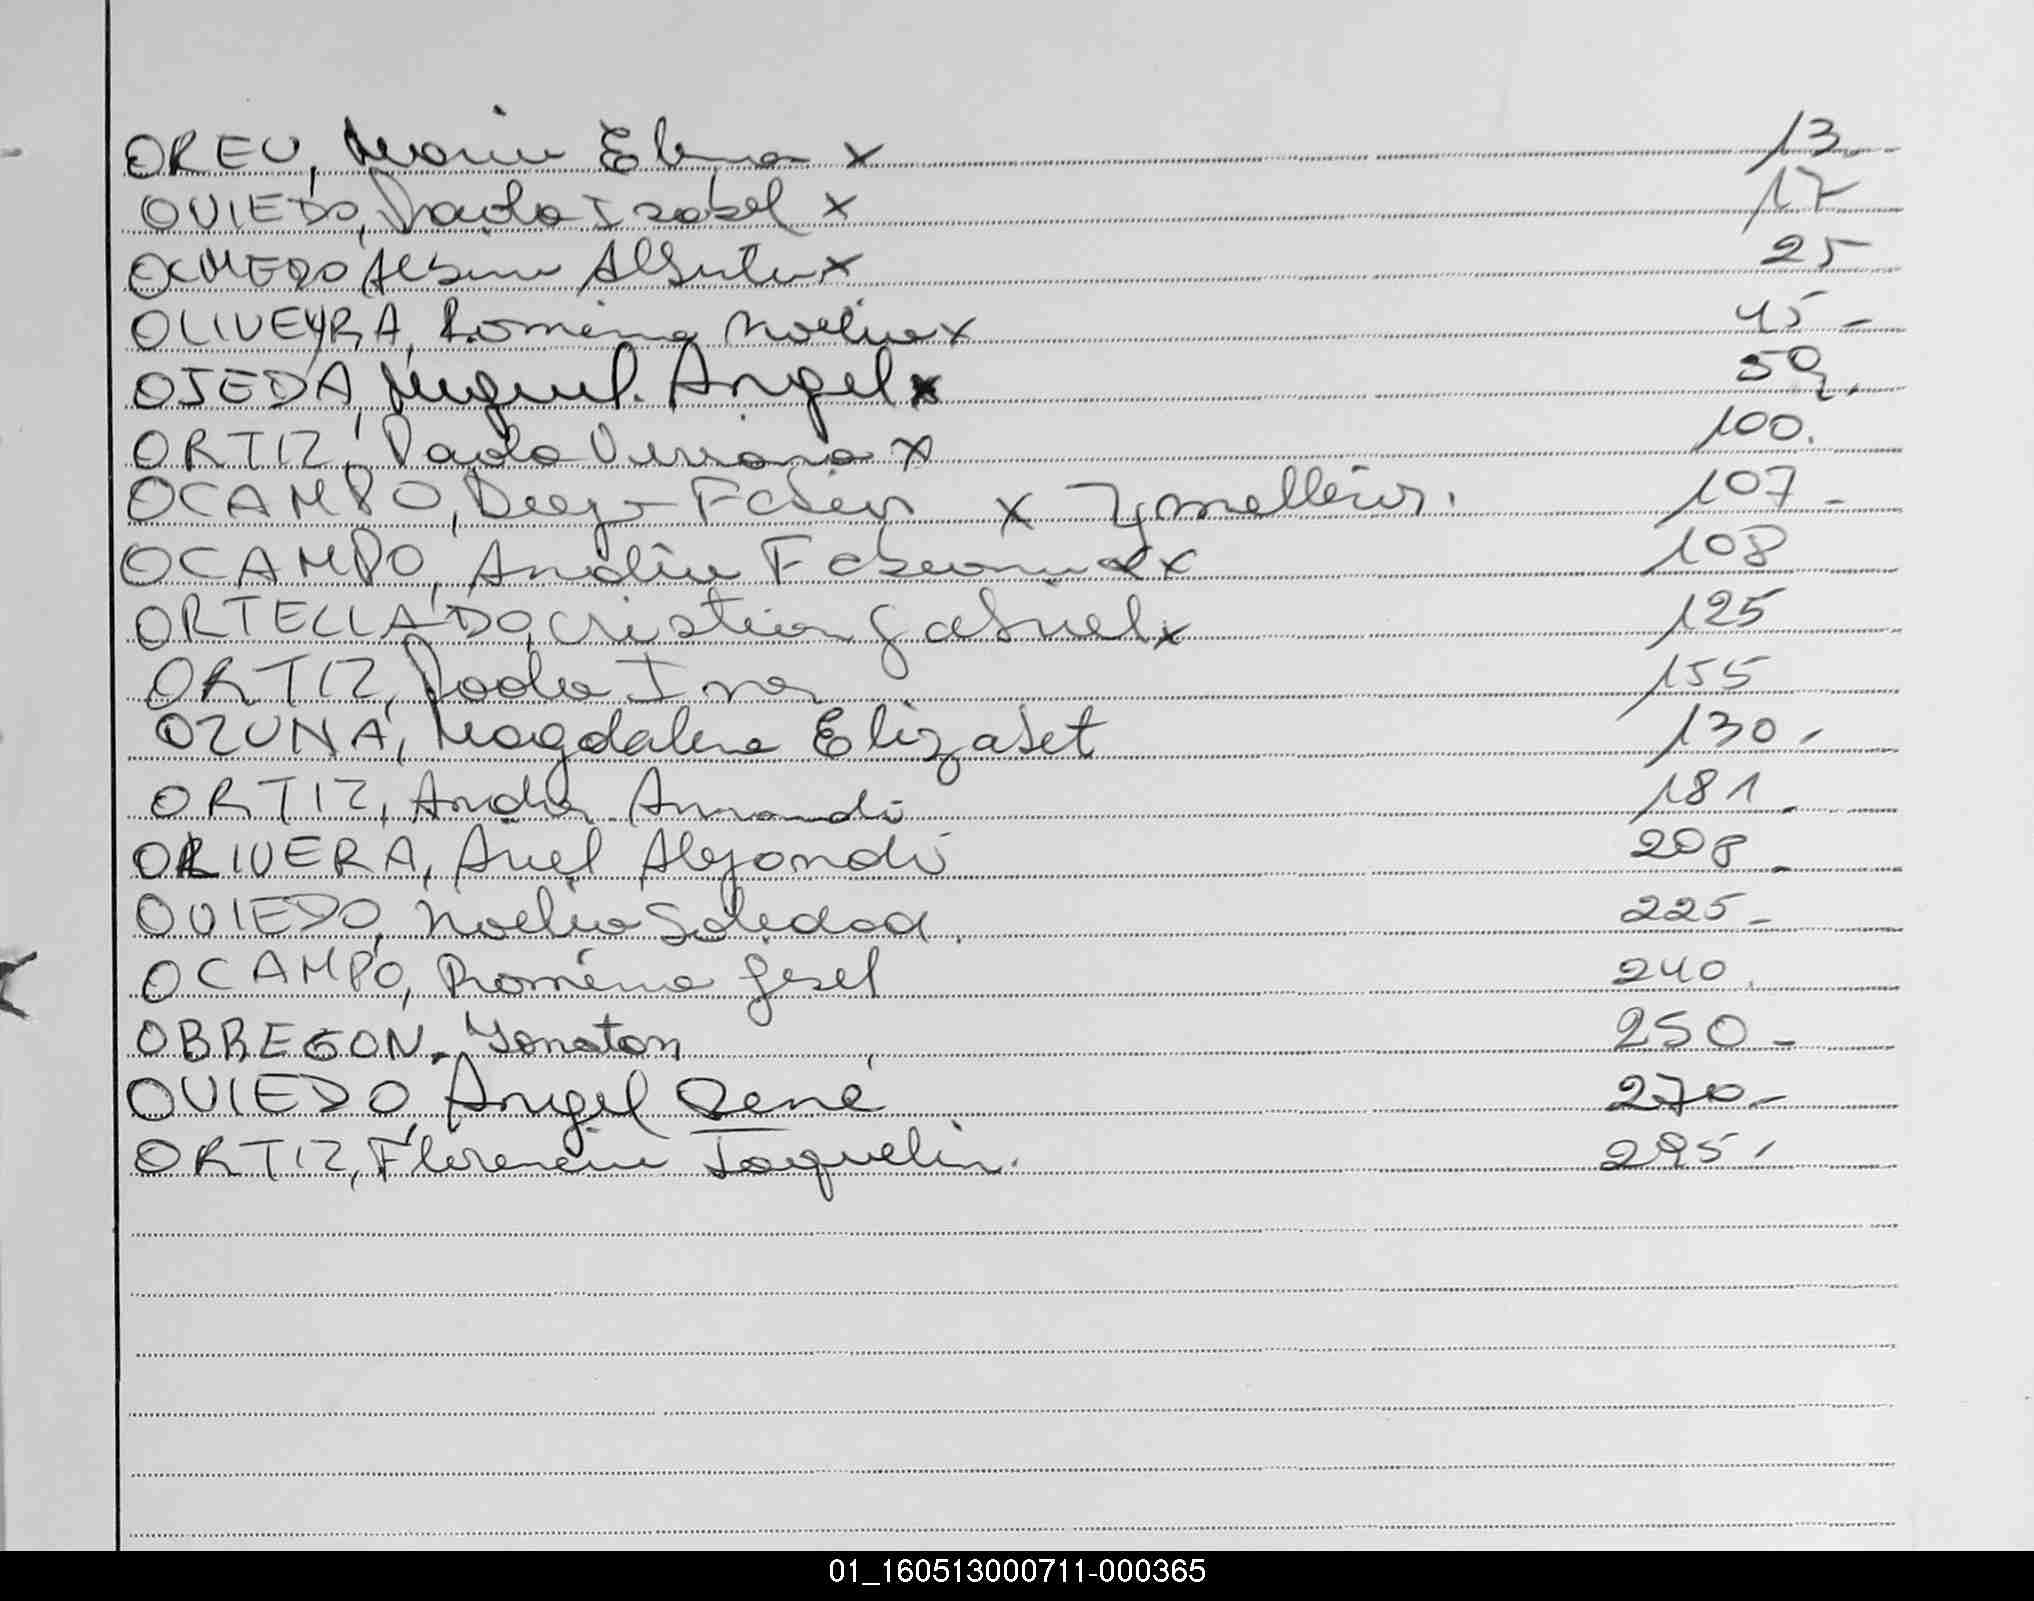 OREU, Maria Elena x 13.
OVIEDO, Paola Isabel x 17
OLMEDO Albino Alberto x 25
OLIVEYRA, Romina Noelia x 45 -
OJEDA, Miguel Angel x 59.
ORTIZ, Paola Viviana x 100.
OCAMPO, Diego Fabian x gemellar. 107 -
OCAMPO, Andrea Fabiana x 108
ORTELLADO, Cristian Gabriel x 125
ORTIZ, Paola Ines 155
OZUNA, Magdalena Elizabet 130 -
ORTIZ, Andres Armando 181.
OLIVERA, Ariel Alejandro 208.
OVIEDO, Noelia Soledad. 225 -
OCAMPO, Romina Gesel 240.
OBREGON, Yonatan 250 -
OVIEDO, Angel René 270 -
ORTIZ, Florencia Jaquelin. 295 -
01_160513000711-000365